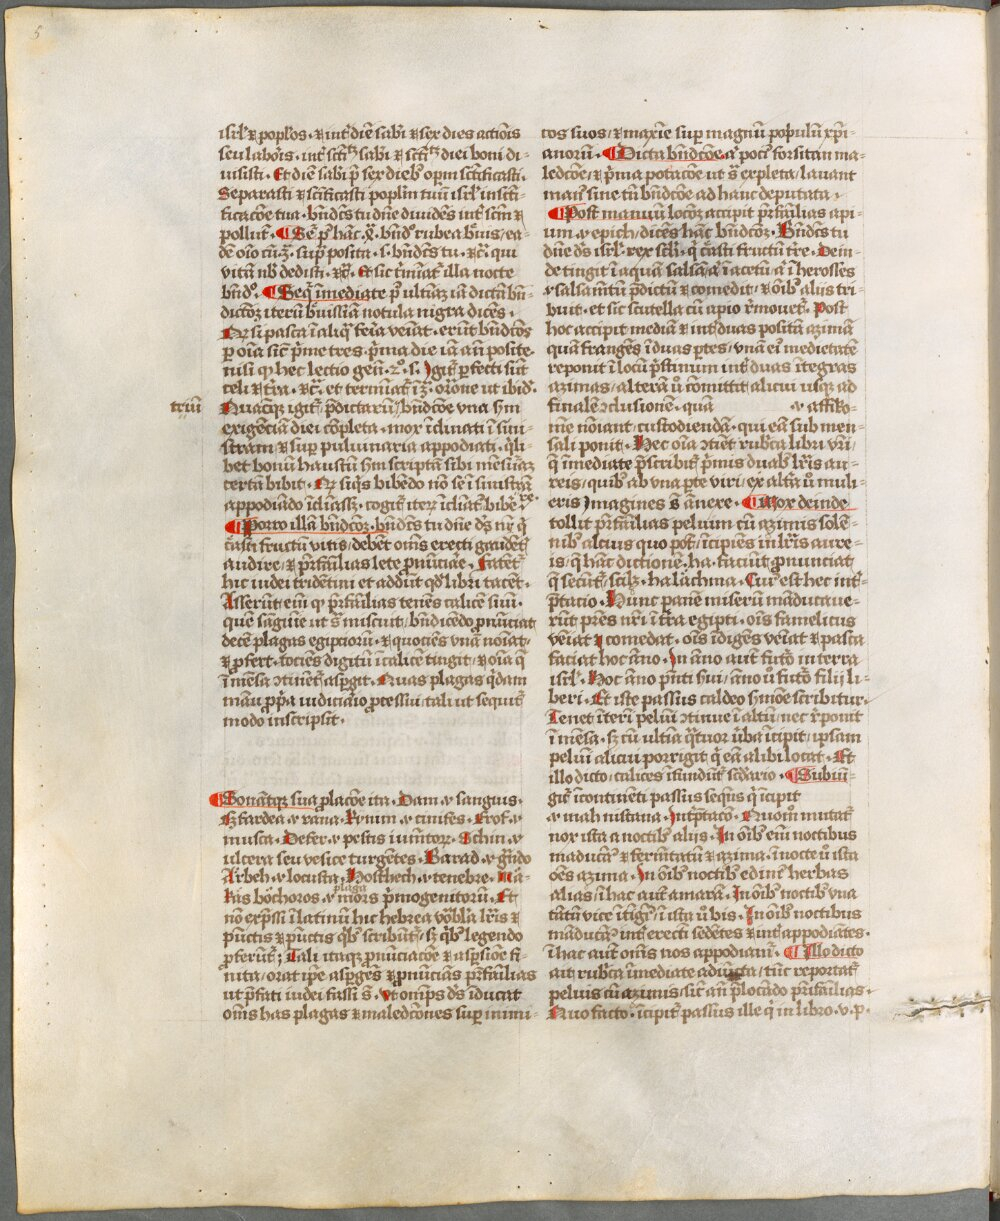 5
isrl' ⁊ poplos · ⁊ int̄ diē sabi ⁊ sex dies actiōis
seu labōis · int̄ scītatē sabi ⁊ scītatē diei boni di-
uisisti · Et diē sabi p̄ sex dieb' opm sc̄ificasti ·
Separasti ⁊ sc̄ificasti poplm tuū isrl' in sc̄ti-
ficacōe tua · bn̄dcs tu dn̄e diuidēs int̄ scm̄ ⁊
pollut̄ · hāc rubea
suꝑ posita · s · bn̄dcs tu · ⁊c̄ · qui
vitā nb̄ dedisti · ⁊c̄ · Et sic t̄minat̄ illa nocte
bn̄do · Seq̄ īmediate p' ultimā iā dictāꝝ bn̄-
dictōꝝ iterū breuissīa notula nigra dicēs ·
Et si pasca ī aliq̄ feria veiat · erūt bn̄dctōes
ꝑ oīa sic p̄me tres · p̄ma die iā an̄ posite ·
nisi ꝙ hec lectio gen̄ · 2º · s · Igit̄ ꝑfecti sūt
celi ⁊ t̄ra · ⁊c̄ · et termīat̄ orōne ut ibid' ·
triū
igit̄ p̄dictarū bn̄dcōe vna sm̄
exigēcia diei cōpleta · mox īclinati ī sini-
stram ⁊ suꝑ puluinaria appodiati · q̄li-
bet bonū haustū sm̄ scriptā sibi mēsurā
certā bibit · Et siq̄s bibēdo nō se ī sinistrā
re ·
appodiādo īcliass; · cogit̄ iterū īcliat̄ bibē
Porro illā bn̄dcōꝝ · bn̄dcs tu dn̄e ds̄ n̄r q̄
c̄asti fructū vitis / debēt om̄s erecti gaudēt̄
audire / ⁊ p̄rfāilias lete ꝓnūciare · Fatēt̄
hic iudei tridētini et addūt qd' libri tacēt ·
Asserūt em̄ ꝙ p̄rfāilias tenēs calicē suū ·
quē sāguīe ut s̄ miscuit / bn̄dicēdo ꝓnūciat
decē plagas egipciorū · ⁊ quociēs vnā noīat /
⁊ ꝓfert · tociēs digitū ī calicē tingit / ⁊ oīa q̄
ī mēsa ꝯtinēt̄ asꝑgit · Quas plagas q̄dam
manu ꝓpa iudiciario ꝓcessui / tali ut sequit̄
modo inscripsit ·
Sonātqꝫ sua placōe ita · Dam · v · sanguis ·
Szfardea · v · rana · Kynnim · v · cinifes · Erof · v ·
musca · Defer · v · pestis iumtoꝝ · Schin · v ·
ulcera seu vesice turgētes · Barad · v · grādo
Arbeh · v · locusta · Hosthech · v · tenebre · Ma-
plaga
kas bōchoros · v · mors p̄mogenitorū · Et
nō exp̄ssi ī latinū hic hebrea vōbla lr̄is ⁊
pūctis ⁊ pūctis q̄b' scribūt̄ / sꝫ q̄b' legendo
ꝓferūt̄ ; Tali itaqꝫ ꝓnūciacōe ⁊ asꝑsiōe fi-
nita / orat ipē asꝑgēs ⁊ ꝓnūcias p̄rfāilias
ut p̄fati iudei fassi s̄ · Vt omīps ds̄ īducat
om̄s has plagas ⁊ maledcōnes suꝑ inimi-
cos suos / ⁊ maxie suꝑ magnū populū xp̄i-
anorū · Dicta bn̄dcōe q̄ poti' forsitan ma-
ledcōe / ⁊ p̄ma potacōe ut s̄ expleta / lauant
man' sine tn̄ bn̄dcōe ad hanc deputata ·
Post manuū locōꝫ accipit p̄rfāilias api-
um · v · epich / dicēs hāc bn̄dcōꝫ · Bn̄dcs tu
dn̄e ds̄ isrl' · rex scli' · q̄ c̄asti fructū t̄re · Dein-
de tingit ī aquā salsā / ī acetū ī herosses
v salsam̄tū p̄dictū ⁊ comedit / ⁊ ōib' alijs tri-
buit · et sic scutella cū apio r̄mouet̄ · Post
hoc accipit mediā ⁊ int̄ duas positā azimā
quā frangēs ī duas ꝑtes / vnā ei' medietatē
reponit ī locū p̄stinum int̄ duas ītegras
azimas / alterā ū cōmittit alicui usqꝫ ad
finalē ꝯclusionē · quā v · affiko-
me nōiant / custodiendā · qui eā sub men-
sali ponit · Hec oīa ꝯtiēt rubīca libri vr̄i /
q̄ īmediate p̄scribit̄ p̄mis duab' lr̄is au-
reis / quib' ab vna ꝑte viri / ex altā ū muli-
eris Imagines s̄ ānexe · Mox deinde
tollit p̄rfāilias peluim cū azimis sole-
nib' alcius quo pōt / īcipiēs in lr̄is aure-
is / q̄ hāc dictionē · ha · faciūt / ꝓnunciat /
q̄ secūt̄ / sciꝫ · ha lachma · Cui' est hec int̄-
p̄tacio · Hunc panē miserū māducaue-
rūt pr̄es nr̄i ī t̄ra egipti · oīs famelicus
veīat ⁊ comedat · oīs īdigēs veīat ⁊ pasca
faciat hoc āno · In āno aut̄ futo in terra
isrl' · Hoc āno p̄nti hui / āno ū futo filij li-
beri · Et iste passus caldeo sm̄one scribitur
Tenet īterī peluī ꝯtinue ī altū / nec r̄ponit
ī mēsa · sꝫ cū ultīa q̄tuor v̄ba īcipit / ipsam
peluī alicui porrigit q̄ eā alibi locat · Et
illo dicto / calices īfundūt̄ scd̄ario · Subiū-
git̄ īcontinēti passus sequēs q̄ īcipit
v mah nistana · Int̄p̄tato · Quom' mutat̄
nox ista a noctib' alijs · In ōib' em̄ noctibus
maducat̄ ⁊ ferm̄tatū ⁊ azima · ī nocte ū ista
ōes azima · In ōib' noctib' edunt herbas
alias / ī hac aut̄ amarā · In ōib' noctib' vna
tātū vice ītīgit̄ / ī ista ū bis · In ōib' noctibus
māducat̄ int̄ erecti sedētes ⁊ int̄ appodiātes ·
ī hac aut̄ om̄s nos appodiam̄ · Illo dicto
ait rubīca īmediate adiūcta / tūc reportat̄
peluis cū azimis / sic an̄ p̄ locādo p̄rifāilias ·
Quo facto · īcipit̄ passus ille q̄ in libro · v · p ·